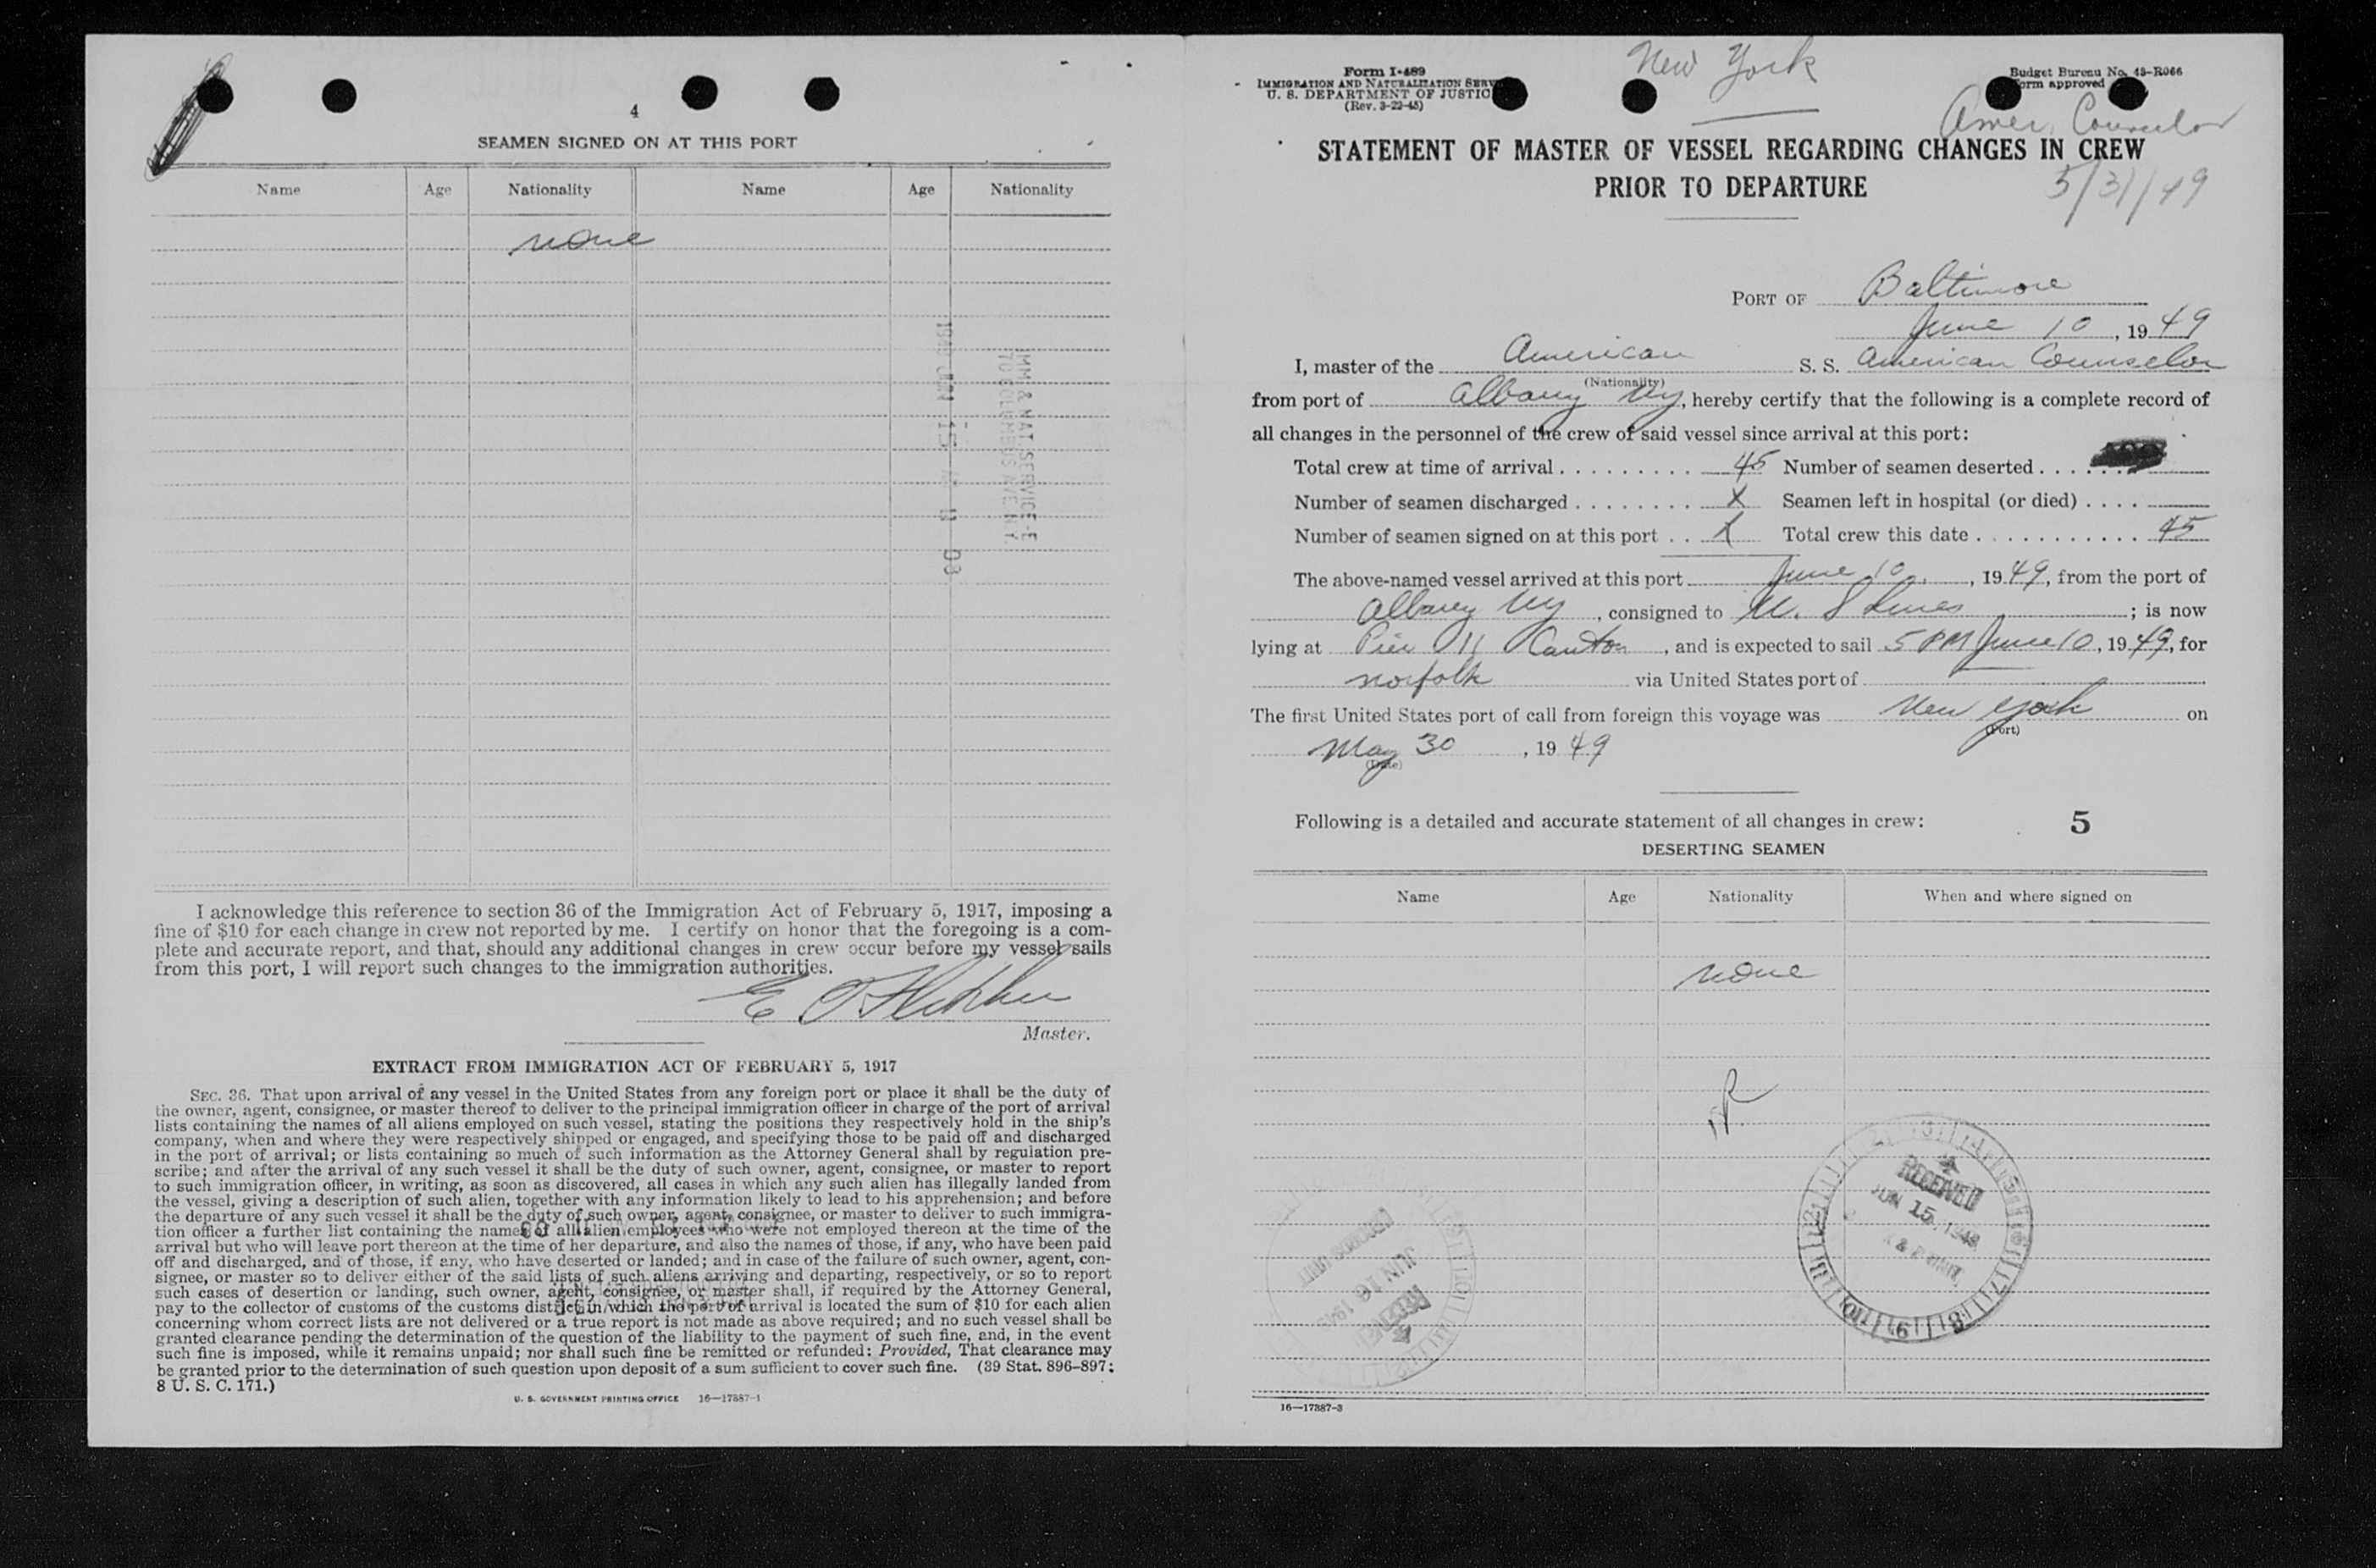 4
SEAMEN SIGNED ON AT THIS PORT
Name Age Nationality Name Age Nationality
none
IMM & NAT. SERVICE
70 COLUMBUS AVE N.Y.
1949 JUN 15 11 03
I acknowledge this reference to section 36 of the Immigration Act of February 5, 1917, imposing a
fine of $10 for each change in crew not reported by me. I certify on honor that the foregoing is a com-
plete and accurate report, and that, should any additional changes in crew occur before my vessel sails
from this port, I will report such changes to the immigration authorities.
E
Master.
EXTRACT FROM IMMIGRATION ACT OF FEBRUARY 5, 1917
SEC. 36. That upon arrival of any vessel in the United States from any foreign port or place it shall be the duty of
the owner, agent, consignee, or master thereof to deliver to the principal immigration officer in charge of the port of arrival
lists containing the names of all aliens employed on such vessel, stating the positions they respectively hold in the ship's
company, when and where they were respectively shipped or engaged, and specifying those to be paid off and discharged
in the port of arrival; or lists containing so much of such information as the Attorney General shall by regulation pre-
scribe; and after the arrival of any such vessel it shall be the duty of such owner, agent, consignee, or master to report
to such immigration officer, in writing, as soon as discovered, all cases in which any such alien has illegally landed from
the vessel, giving a description of such alien, together with any information likely to lead to his apprehension; and before
the departure of any such vessel it shall be the duty of such owner, agent, consignee, or master to deliver to such immigra-
tion officer a further list containing the names of all alien employees who were not employed thereon at the time of the
arrival but who will leave port thereon at the time of her departure, and also the names of those, if any, who have been paid
off and discharged, and of those, if any, who have deserted or landed; and in case of the failure of such owner, agent, con-
signee, or master so to deliver either of the said lists of such aliens arriving and departing, respectively, or so to report
such cases of desertion or landing, such owner, agent, consignee, or master shall, if required by the Attorney General,
pay to the collector of customs of the customs district in which the port of arrival is located the sum of $10 for each alien
concerning whom correct lists are not delivered or a true report is not made as above required; and no such vessel shall be
granted clearance pending the determination of the question of the liability to the payment of such fine, and, in the event
such fine is imposed, while it remains unpaid; nor shall such fine be remitted or refunded: Provided, That clearance may
be granted prior to the determination of such question upon deposit of a sum sufficient to cover such fine. (39 Stat. 896–897;
8 U. S. C. 171.)
U. S. GOVERNMENT PRINTING OFFICE 16—17387-1
New York
Form I-489
IMMIGRATION AND NATURALIZATION SERV
U. S. DEPARTMENT OF JUSTIC
(Rev. 3-22-45)
Budget Bureau No. 43-R066
orm approved
Amer. Counselor
5/31/49
STATEMENT OF MASTER OF VESSEL REGARDING CHANGES IN CREW
PRIOR TO DEPARTURE
PORT OF Baltimore
June 10, 1949
I, master of the American S. S. American Counselor
(Nationality)
from port of Albany Ny, hereby certify that the following is a complete record of
all changes in the personnel of the crew of said vessel since arrival at this port:
Total crew at time of arrival . . . . . . . . . 45 Number of seamen deserted . . . .
Number of seamen discharged . . . . . . . . X Seamen left in hospital (or died) . . . .
Number of seamen signed on at this port . . X Total crew this date . . . . . . . . . . . 45
The above-named vessel arrived at this port June 10, 1949, from the port of
Albany Ny, consigned to U. S Lines ; is now
lying at Pier 11 Canton, and is expected to sail 5 PM June 10, 1949, for
norfolk via United States port of
The first United States port of call from foreign this voyage was New York on
(Port)
May 30, 1949
(Date)
Following is a detailed and accurate statement of all changes in crew: 5
DESERTING SEAMEN
Name Age Nationality When and where signed on
none
RECEIVED
JUN 15 1949
JUN 16
RECEIVED
16—17387-3